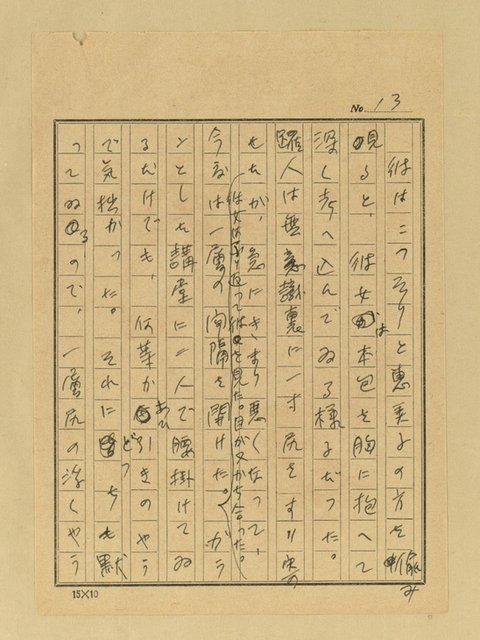 No. 13
彼はこつそりと恵美子の方を偸み
覗ると、彼女は本包を胸に抱へて
深く考へ込んでゐる様子だつた。
躍人は無意識裏に一寸尻をすり寄
せたが、急にきまり悪くなつて、
彼女はふり返つて彼を見た。目がぶつかち合つた。
今度は一層の間隔を開けた。がら
ンとした講堂に二人で腰掛けてゐ
るだけでも、何筆かあひ引きのやう
で気拙かつた。それにどつちも黙
つてゐるので、一層尻の浮くやう
15×10